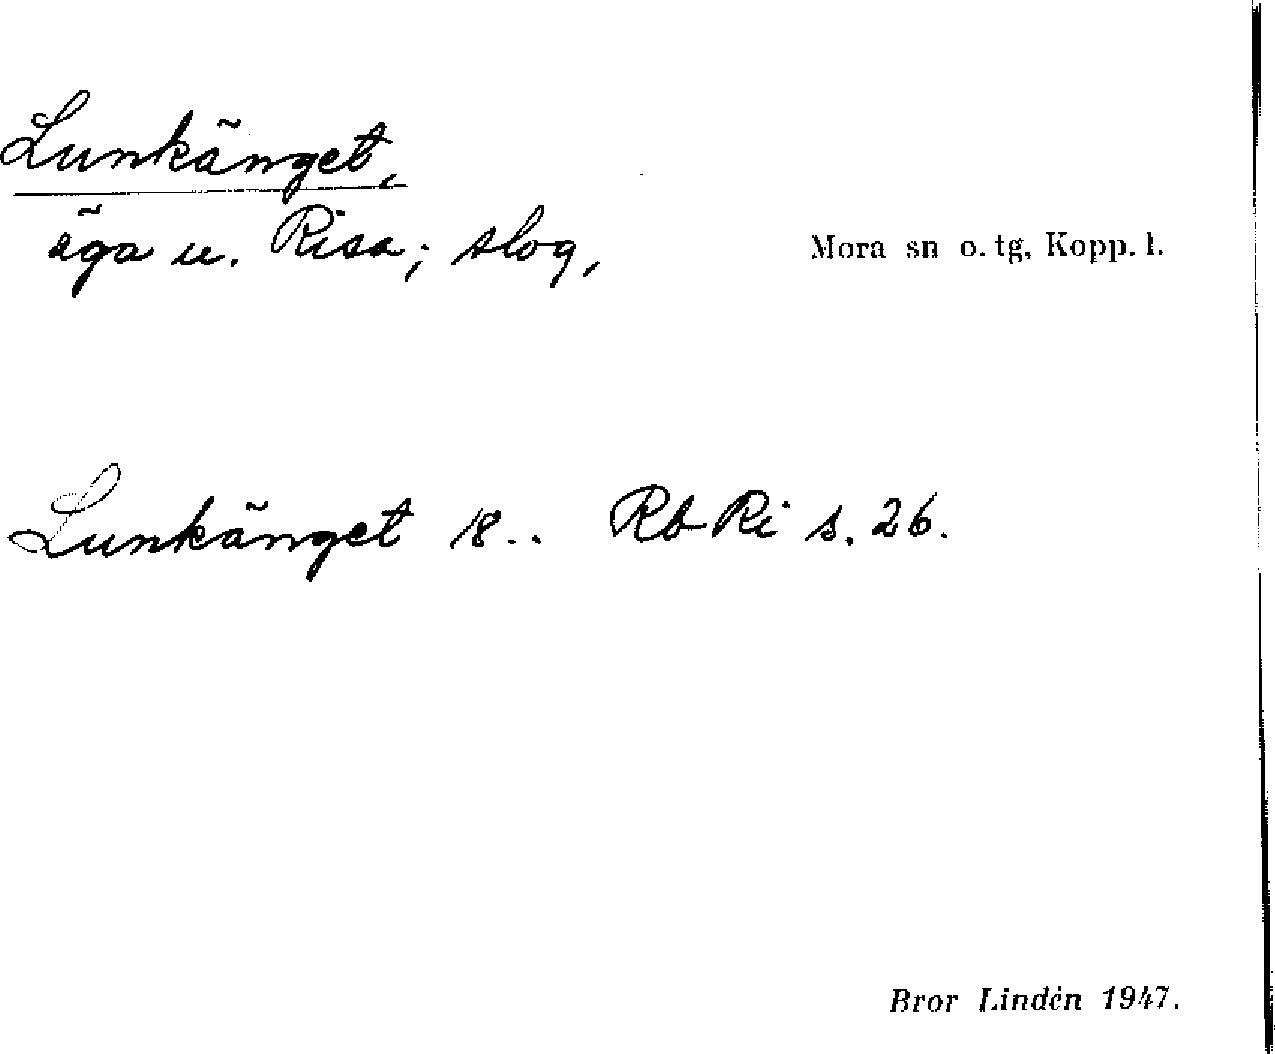 Lunkänget,
äga u. Risa; slog,
Mora sn o. tg, Kopp. l.
Lunkänget 18.. Rb Ri s. 26.
Bror Lindén 1947.